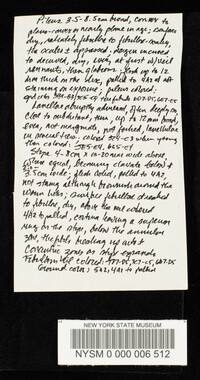 Pileus 3.5-8.5cm broad, convex to
plano-convex or nearly plane in age; surface
dry, radially fibrillose to fibrillose-scaly,
the scales ± appressed. Margin incurved
to decurved, dry, even, at first w/ veil
remnants, then glabrous. Flesh up to 12
mm thick in the disc, pallid to 4A2 not
staining on exposure; pileus colored:
Lamellae abruptly adnexed, often deeply so
close to subdistant, thin, up to 12 mm broad,
even, not marginate, not forked, lamellulae
in several tiers; colored when young
then colored: 5E5-E4, 625-E4
Stipe 4-8cm x 10-20mm wide above
equal, becoming clavate below to
3.5cm wide; flesh solid, pallid to 4A2,
not staining although brownish around the
worm holes; surface fibrillose streaked
to fibrillose, dry, above the veil colored
4A2 to pallid, cortina leaving a superior
ring on the stipe, below the annulus
the fibrils breaking up into ±
concentric zones as stipe expands
Fibrillose veil colored:
Ground color: 5A2, 4A2 to pallid
NEW YORK STATE MUSEUM
NYSM 0 000 006 512